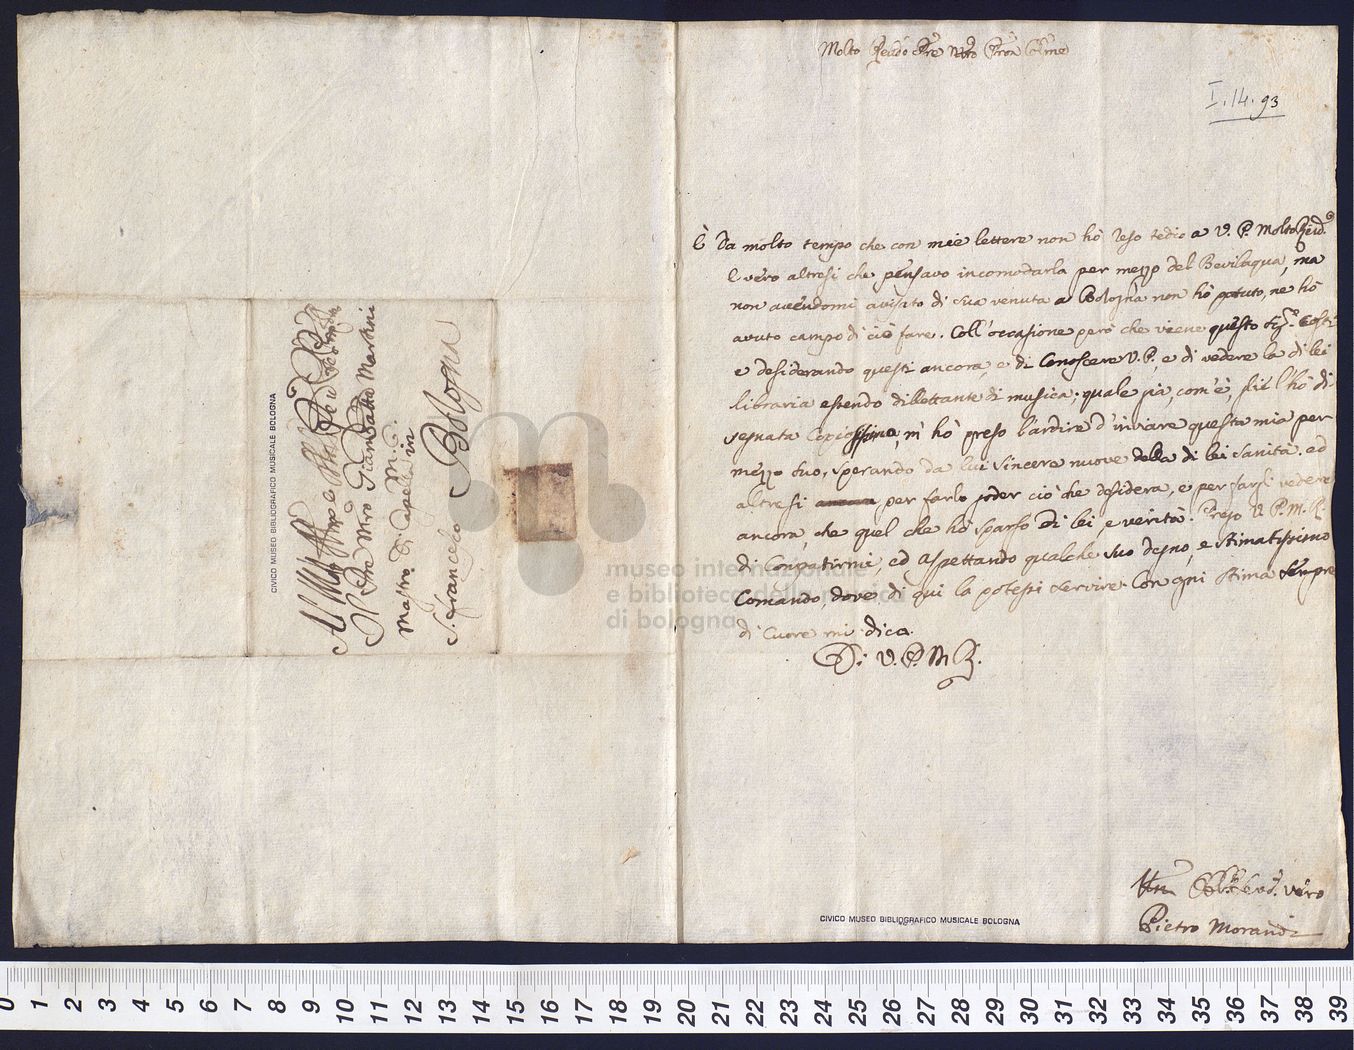 Al Molto
Il Pre Mro Giambatta Martini
Mastro di Capella M. C. in
S. Francesco Bologna
CIVICO MUSEO BIBLIOGRAFICO MUSICALE BOLOGNA
Molto Revdo Pre Mro Pron Colmo
I. 14. 93
È da molto tempo che con mie lettere non hò reso tedio a V. P. Molto Revd.
È vero altresi che pensavo incomodarla per mezzo del Bevilaqua, ma
non avendomi avisato di sua venuta a Bologna non hò potuto, ne hò
avuto campo di ciò fare. Coll'occasione però che viene questo Sigr. Costi
e desiderando questi ancora, e di Conoscere V. P., e di vedere la di lei
libraria essendo dilettante di musica; quale già, com'è, l'hò di
segnata Copiosissima, m' hò preso l'ardire d'inviare questa mia per
mezzo suo, sperando da lui sincere nuove della di lei sanità. ed
altresi per farlo poder ciò che desidera, e per fargli vedere
ancora, che quel che hò sparso di lei, e verità. Prego V. P. M. R.
di Conpatirmi, ed aspettando qualche suo degno, e stimatissimo
Comando, dove di qui la potessi servire con ogni stima sempre
di Cuore mi dico.
Di V. P. M. R.
museo internazionale
e biblioteca della musica
di bologna
Servo. vero
Pietro Morandi
CIVICO MUSEO BIBLIOGRAFICO MUSICALE BOLOGNA
0 1 2 3 4 5 6 7 8 9 10 11 12 13 14 15 16 17 18 19 20 21 22 23 24 25 26 27 28 29 30 31 32 33 34 35 36 37 38 39